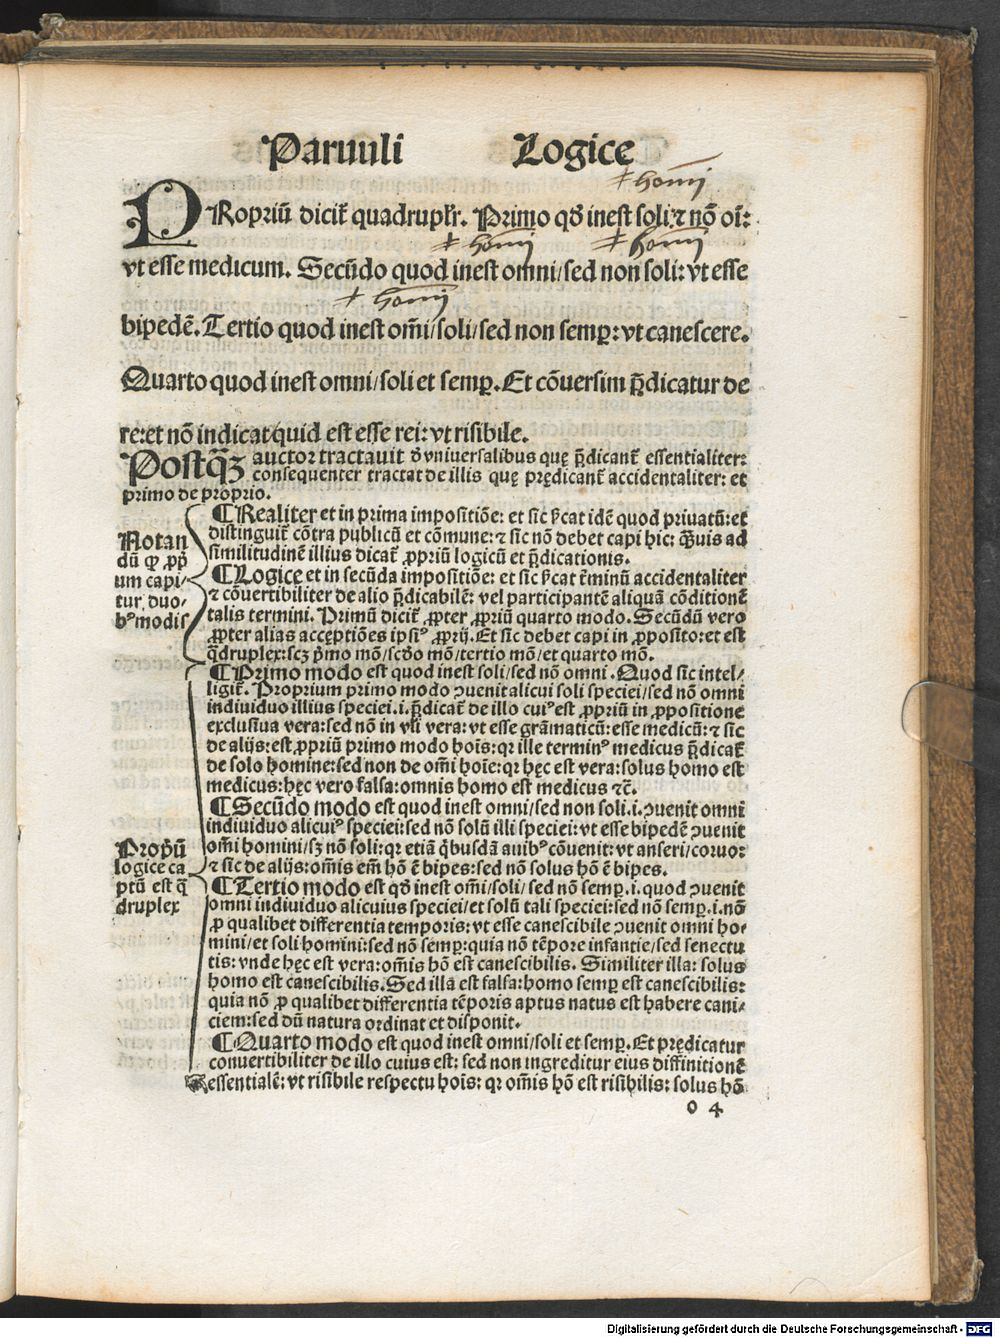 Paruuli Logice
+ homi
PRopriū dicit̄ quadruplr̄. Primo qď inest soli:⁊ nō oī:
+ homi + homi
vt esse medicum. Secūdo quod inest omni/sed non soli:vt esse
+ homi
bipedē. Tertio quod inest om̄i/soli/sed non semꝑ:vt canescere.
Quarto quod inest omni/soli et semꝑ. Et cōuersim p̄dicatur de
re:et nō indicat quid est esse rei:vt risibile.
Postq̄ꝫ auctor tractauit ď vniuersalibus quę p̄dicant̄ essentialiter:
consequenter tractat de illis quę prędicant̄ accidentaliter: et
primo de proprio.
Notan
dū ꝙ ꝓp̄
um capi/
tur duo/
bꝰ modis
¶ Realiter et in prima impositiōe: et sic s̄cat idē quod priuatū:et
distinguit̄ cōtra publicū et cōmune:⁊ sic nō debet capi hic: q̄uis ad
similitudinē illius dicat̄ ꝓpriū logicū et p̄dicationis.
¶ Logice et in secūda impositiōe: et sic s̄cat t̄minū accidentaliter
⁊ cōuertibiliter de alio p̄dicabilē: vel participantē aliquā cōditionē
talis termini. Primū dicit̄ ꝓpter ꝓpriū quarto modo. Secūdū vero
ꝓpter alias acceptiōes ipsiꝰ ꝓprij. Et sic debet capi in ꝓposito:et est
q̄druplex:scꝫ p̄mo mō/scďo mō/tertio mō/et quarto mō.
Propriū
logice ca
ptū est q̄
druplex
¶ Primo modo est quod inest soli/sed nō omni. Quod sic intel/
ligit̄. Proprium primo modo ↄuenit alicui soli speciei/sed nō omni
indiuiduo illius speciei.i.p̄dicat̄ de illo cuiꝰ est ꝓpriū in ꝓpositione
exclusiua vera:sed nō in vl̄i vera:vt esse grāmaticū:esse medicū:⁊ sic
de alijs:est ꝓpriū primo modo hoīs:qr ille terminꝰ medicus p̄dicat̄
de solo homine:sed non de om̄i hoīe:qr hęc est vera:solus homo est
medicus:hęc vero falsa:omnis homo est medicus ⁊c̄.
¶ Secūdo modo est quod inest omni/sed non soli.i.ↄuenit omni
indiuiduo alicuiꝰ speciei:sed nō solū illi speciei:vt esse bipedē ↄuenit
om̄i homini/sꝫ nō soli:qr etiā q̄busdā auibꝰ cōuenit:vt anseri/coruo:
⁊ sic de alijs:om̄is em̄ hō ē bipes:sed nō solus hō ē bipes.
¶ Tertio modo est qď inest om̄i/soli/ sed nō semꝑ.i.quod ↄuenit
omni indiuiduo alicuius speciei/et solū tali speciei:sed nō semꝑ.i.nō
ꝓ qualibet differentia temporis:vt esse canescibile ↄuenit omni ho/
mini/et soli homini:sed nō semꝑ:quia nō tēpore infantie/sed senectu
tis:vnde hęc est vera:om̄is hō est canescibilis. Similiter illa: solus
homo est canescibilis. Sed illa est falsa:homo semꝑ est canescibilis:
quia nō ꝓ qualibet differentia tēporis aptus natus est habere cani/
ciem:sed dū natura ordinat et disponit.
¶ Quarto modo est quod inest omni/soli et semꝑ. Et prędicatur
conuertibiliter de illo cuius est: sed non ingreditur eius diffinitionē
essentialē:vt risibile respectu hoīs:qr om̄is hō est risibilis:solus hō
o 4
Digitalisierung gefördert durch die Deutsche Forschungsgemeinschaft - DFG